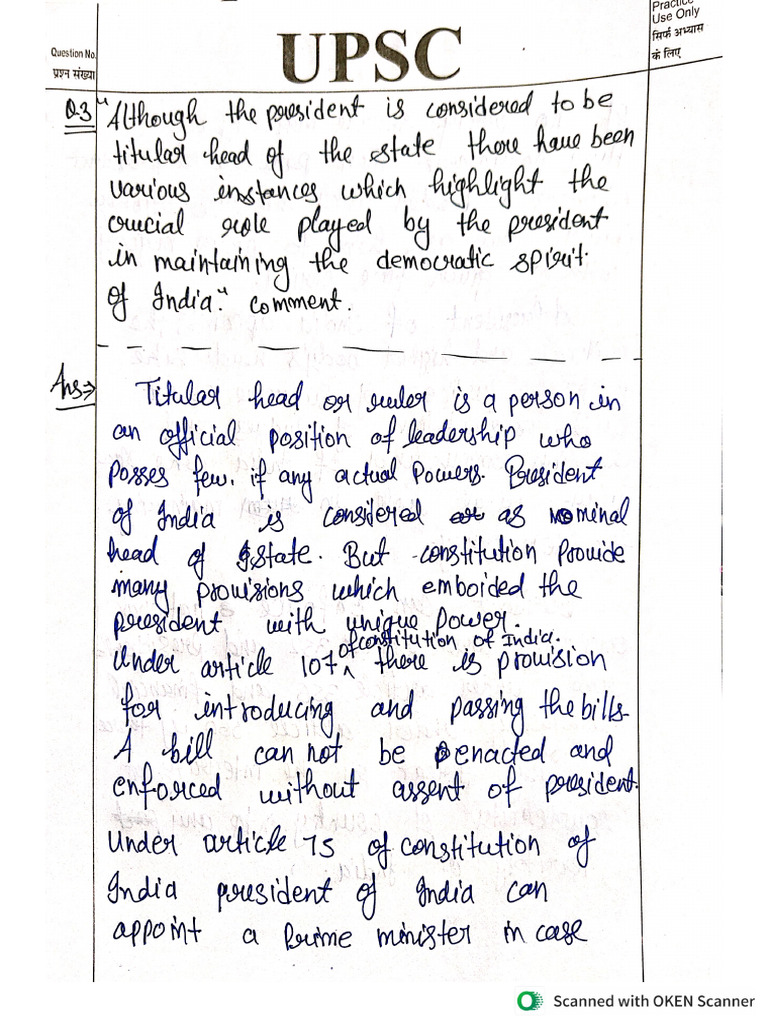 Question No.
प्रश्न संख्या
UPSC
Practice
Use Only
सिर्फ अभ्यास
के लिए
Q.3 "Although the president is considered to be
titular head of the state there have been
various instances which highlight the
crucial role played by the president
in maintaining the democratic spirit
of India." comment.
Ans⇒
Titular head or ruler is a person in
an official position of leadership who
posses few, if any actual powers. President
of India is considered as nominal
head of state. But constitution provide
many provisions which emboided the
president with unique power.
of constitution of India.
Under article 107 ^ there is provision
for introducing and passing the bills.
A bill can not be enacted and
enforced without assent of president.
Under article 75 of constitution of
India president of India can
appoint a Prime minister in case
Scanned with OKEN Scanner